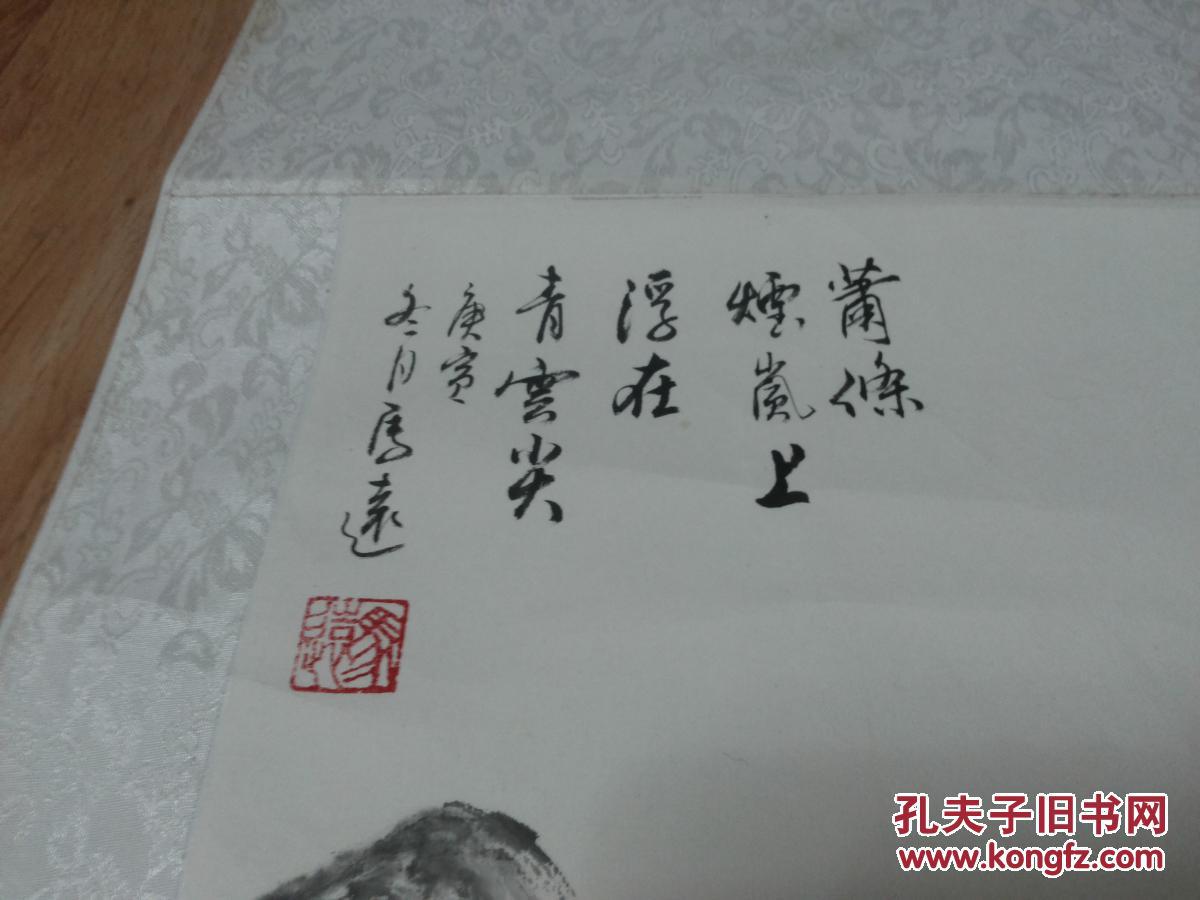 蕭條
煙嵐上
浮在
青雲尖
庚寅
冬月馬遠
孔夫子旧书网
www.kongfz.com